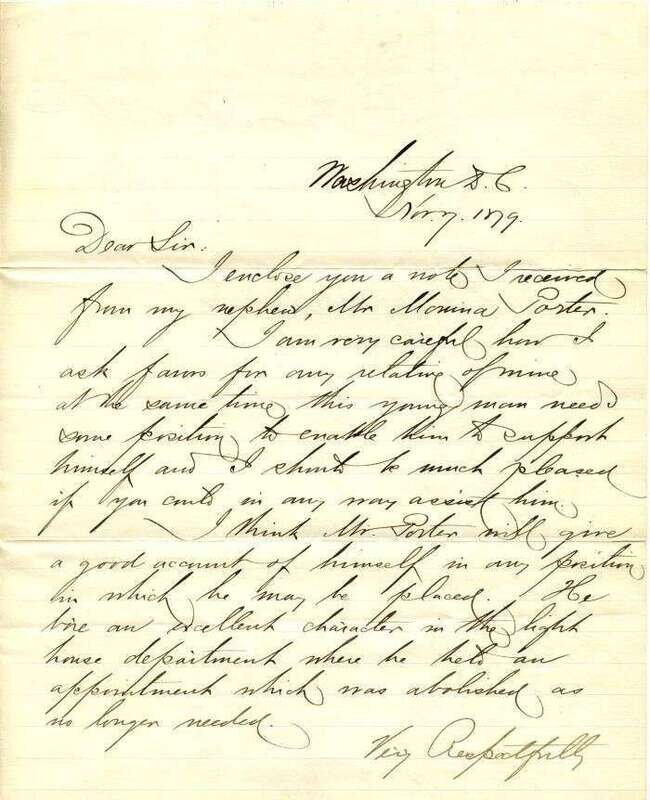 Washington D.C.
Nov. 7. 1879.
Dear Sir.
I enclose you a note I received
from my nephew, Mr Porter.
I am very careful how I
ask favors for any relating of mine
at the same time this young man needs
some position to enable him to support
himself and I should be much pleased
if you could in any way assist him.
I think Mr. Porter will give
a good account of himself in any position
in which he may be placed. He
bore an excellent character in the light
house department where he held an
appointment which was abolished as
no longer needed.
Very Respectfully